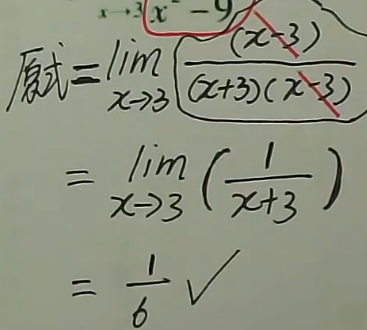 x→3 x² - 9
原式 = lim x→3 (x-3) / (x+3)(x-3)
= lim x→3 ( 1 / x+3 )
= 1/6 ✓